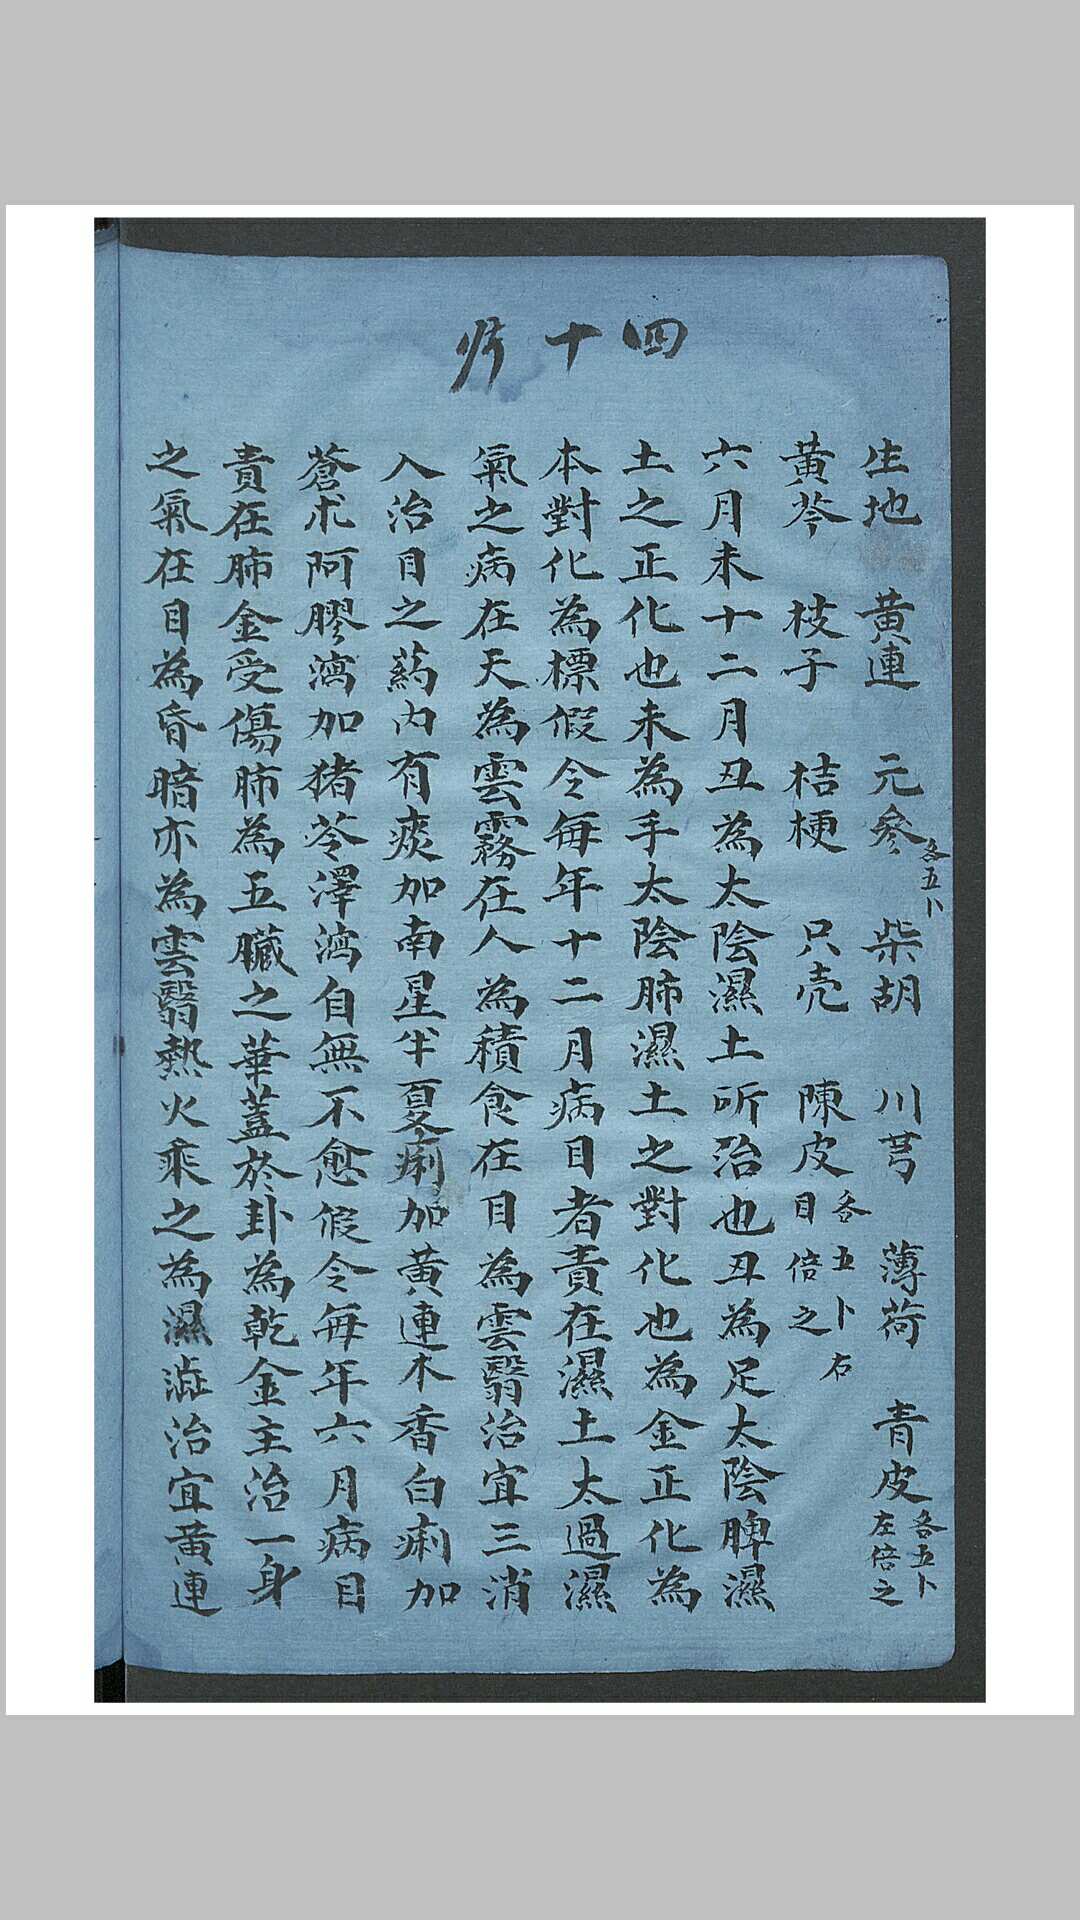 四十
生地 黄連 元參各五卜 柴胡 川芎 薄荷 青皮各五卜左倍之
黄芩 枝子 桔梗 只壳 陳皮各五卜右目倍之
六月未十二月丑為太陰濕土所治也丑為足太陰脾濕
土之正化也未為手太陰肺濕土之對化也為金正化為
本對化為標假令每年十二月病目者責在濕土太過濕
氣之病在天為雲霧在人為積食在目為雲翳治宜三消
入治目之藥内有痰加南星半夏痢加黄連木香白痢加
蒼朮阿膠瀉加猪苓澤瀉自無不愈假令每年六月病目
責在肺金受傷肺為五臟之華蓋於卦為乾金主治一身
之氣在目為昏暗亦為雲翳熱火乘之為濕澁治宜黄連